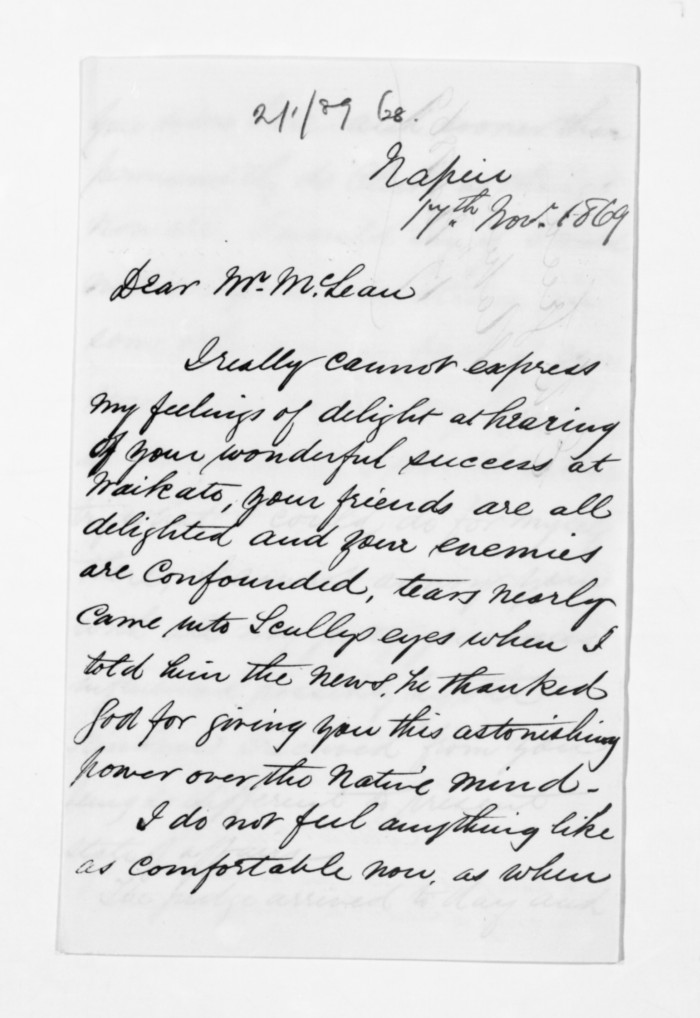 Napier
17th Novr. 1869
Dear Mr. McLean
I really cannot express
my feelings of delight at hearing
of your wonderful success at
Waikato, your friends are all
delighted and your enemies
are confounded, tears nearly
came into Scullys eyes when I
told him the news, he thanked
God for giving you this astonishing
power over the Native mind -
I do not feel anything like
as comfortable now, as when